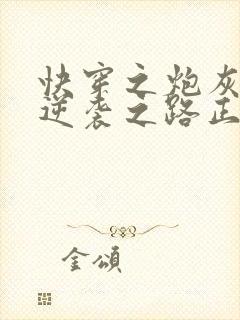 快穿之炮灰
逆袭之路正
金頌